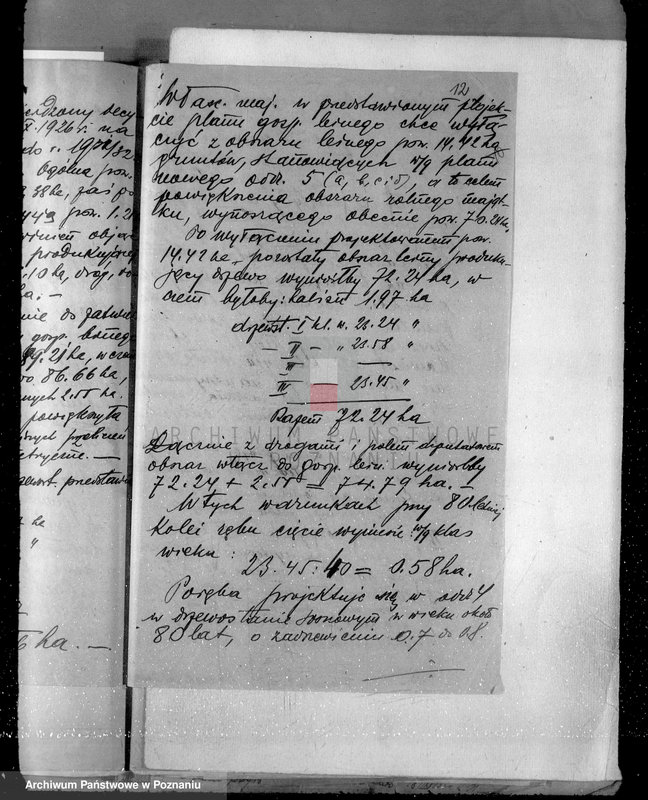 12
Właśc. maj. w przedstawionym projek-
cie planu gosp. leśnego chce wyłą-
czyć z obszaru leśnego pow. 14.42 ha
gruntów, stanowiących w/g planu
nowego odd. 5 (a, b, c i d), a to celem
powiększenia obszaru rolnego mająt-
ku, wynoszącego obecnie pow. 70.28 ha.
Po wyłączeniu projektowanem pow.
14.42 ha, pozostały obszar leśny produku-
jący drzewo wynosiłby 72.24 ha, w
czem byłoby: halizn 1.97 ha
drzewost. I kl. w. 23.24 "
— II — " 23.58 "
— III ——
— IV — 23.45 "
Razem 72.24 ha
Łącznie z drogami i polem deputatowem
obszar włącz. do gosp. leśn. wynosiłby
72.24 + 2.55 = 74.79 ha. —
W tych warunkach przy 80 letniej
kolei rębu cięcie wyniesie w/g klas
wieku:
23.45 : 40 = 0.58 ha.
Porębę projektuje się w odd. 4
w drzewostanie sosnowym w wieku około
80 lat, o zadrzewieniu 0.7 do 0.8.
1926 r. na
do r. 1931/32
Ogólna pow.
38 ha, zaś po
pow. 1.2
produkującej
10 ha, dróg,
ha. —
gosp. leśnego
89.21 ha, w czem
86.66 ha,
2.55 ha.
powiększyła
ha
"
6 ha. —
ARCHIWUM PAŃSTWOWE
W POZNANIU
Archiwum Państwowe w Poznaniu